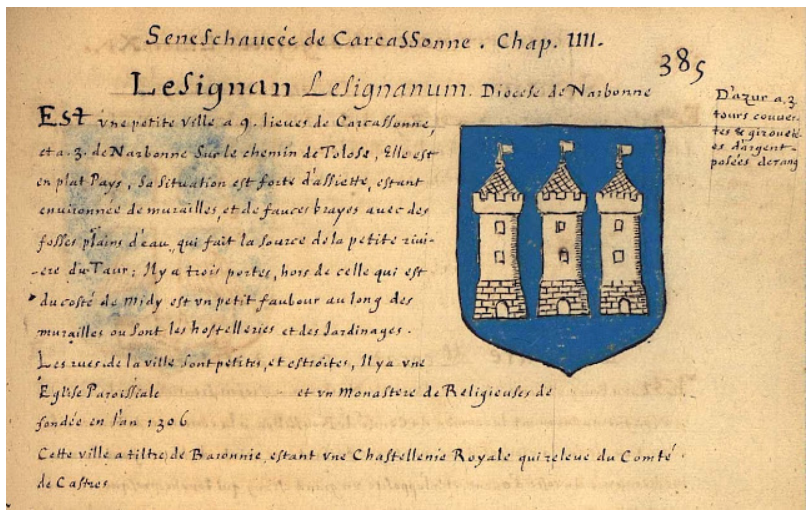 Seneschaucée de Carcassonne. Chap. IIII.
385
Lesignan Lesignanum. Diocese de Narbonne
D'azur a .3.
tours couver-
tes & giroueté-
es d'argent
posées de rang
Est vne petite ville a 9. lieues de Carcassonne,
et a .3. de Narbonne sur le chemin de Tolose, Elle est
en plat Pays, sa situation est forte d'assiette, estant
enuironnee de murailles, et de fauces brayes auec des
fosses plains d'eau, qui fait la source de la petite riui-
-ere du Taur; Il y a trois portes, hors de celle qui est
du costé de midy est vn petit faubour au long des
murailles ou sont les hostelleries et des Jardinages.
Les rues de la ville sont petites, et estroites, Il y a vne
Eglise Paroissiale et vn Monastere de Religieuses de
fondée en l'an 1306
Cette ville a tiltre de Baronnie, estant vne Chastellenie Royale qui releue du Comté
de Castres